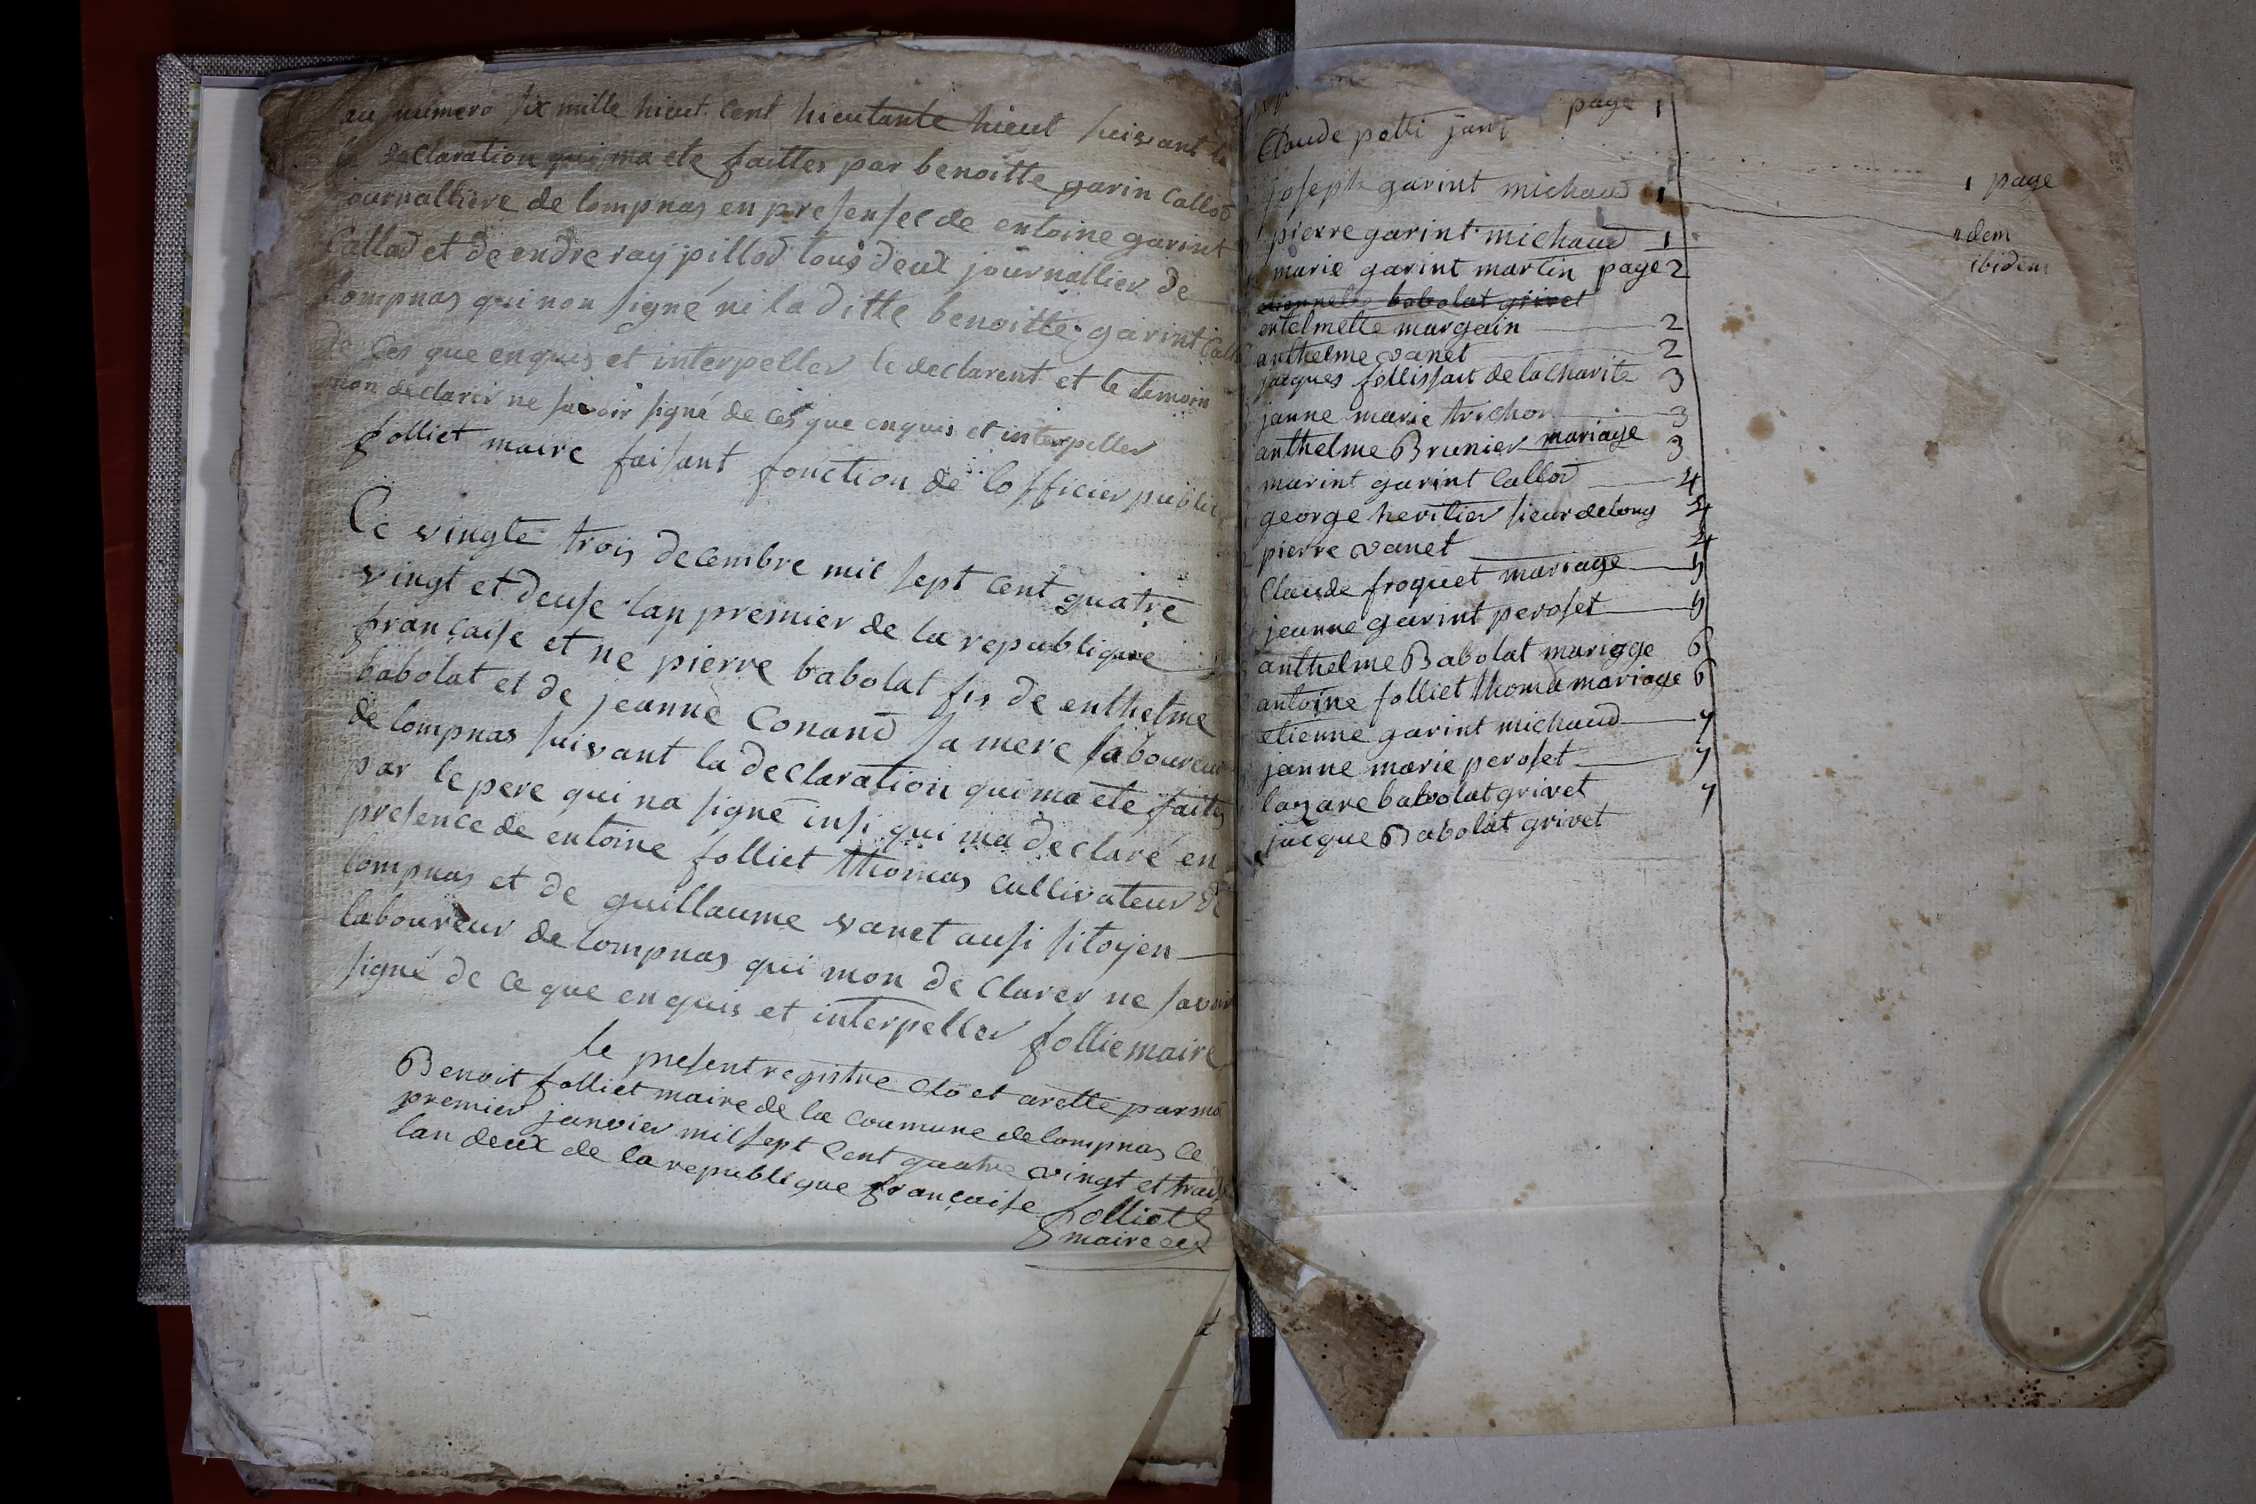 au numero six mille hieut cent hieutante hieut suivant la
declaration qui ma ete faittes par benoitte garin Callod
journalliere de lompnas en presensec de entoine garint
Callod et de endre ray pillod tous deux journallier de
lompnas qui non signe ni la ditte benoitte garint Call
de ces que enquis et interpeller le declarent et le temoin
mon declarer ne savoir signé de ces que enquis et interpeller
folliet maire faisant fonction de lofficier public
Ce vingte trois decembre mil sept cent quatre
vingt et deuse lan premier de la republique
française et ne pierre babolat fis de enthelme
babolat et de jeanne Conand sa mere laboureur
de lompnas suivant la declaration qui ma ete faites
par le pere qui na signé insi qui ma declaré en
presence de entoine folliet thomas cultivateur de
lompnas et de guillaume vanet ausi sitoyen
laboureur de lompnas qui mon de clarer ne savoir
signé de ce que enquis et interpeller folliemaire
le present registre clo et arette par moi
Benoit folliet maire de la coumune de lompnas ce
premier janvier mil sept cent quatre vingt et traise
lan deux de la republique françaises
folliet
maire
page 1
Claude petti jant
joseph garint michaud 1
1 page
pierre garint michaud 1
idem
marie garint martin page 2
ibidem
babolat grivet
entelmette margain 2
anthelme vanet 2
jacques follissait de la charite 3
janne marie trichon 3
anthelme Brunier mariage 3
marint garint Callod 4
george heritier sieur delong 4
pierre vanet 4
Claude froquet mariage 5
jeanne garint peroset 5
anthelme Babolat mariage 6
antoine folliet thoma mariage 6
etienne garint michaud 7
janne marie peroset 7
lazare babolat grivet 7
jacque Babolat grivet